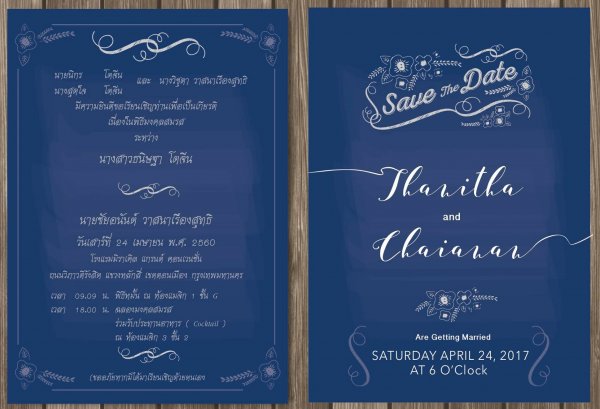 นายนิกร โตจีน และ นางวิฐดา วาสนาเรืองสุทธิ
นางสุดใจ โตจีน
มีความยินดีขอเรียนเชิญท่านเพื่อเป็นเกียรติ
เนื่องในพิธีมงคลสมรส
ระหว่าง
นางสาวธนิษฐา โตจีน
นายชัยอนันต์ วาสนาเรืองสุทธิ
วันเสาร์ที่ 24 เมษายน พ.ศ. 2560
โรงแรมมิราเคิล แกรนด์ คอนเวนชั่น
ถนนวิภาวดีรังสิต แขวงหลักสี่ เขตดอนเมือง กรุงเทพมหานคร
เวลา 09.09 น. พิธีหมั้น ณ ห้องแมจิก 1 ชั้น G
เวลา 18.00 น. ฉลองมงคลสมรส
ร่วมรับประทานอาหาร ( Cocktail )
ณ ห้องแมจิก 3 ชั้น 2
(ขออภัยหากมิได้มาเรียนเชิญด้วยตนเอง
Save The Date
Thanitha
and
Chaianan
Are Getting Married
SATURDAY APRIL 24, 2017
AT 6 O'Clock